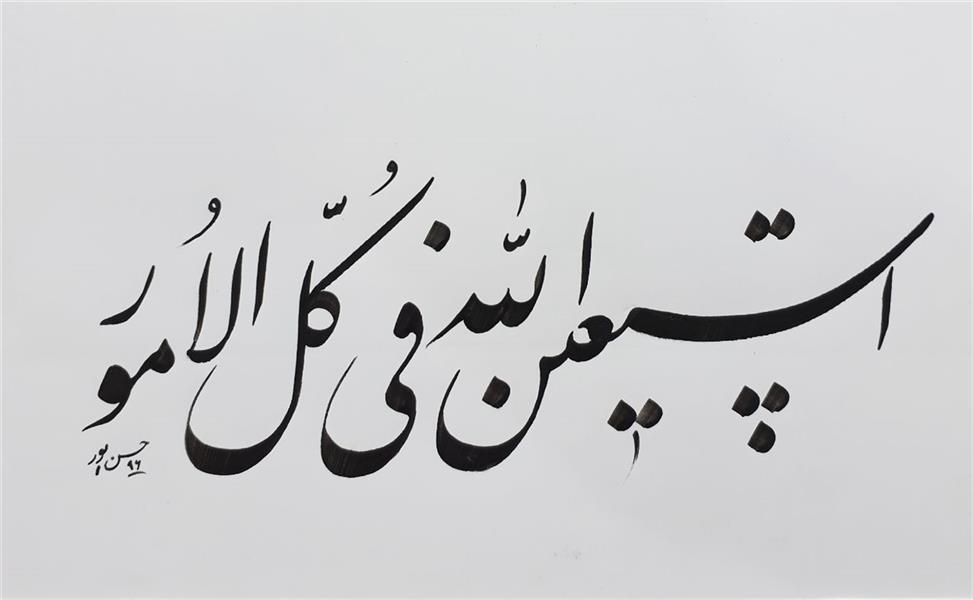 استعین الله فی کُلِّ الاُمور
حسن پور ۹۶